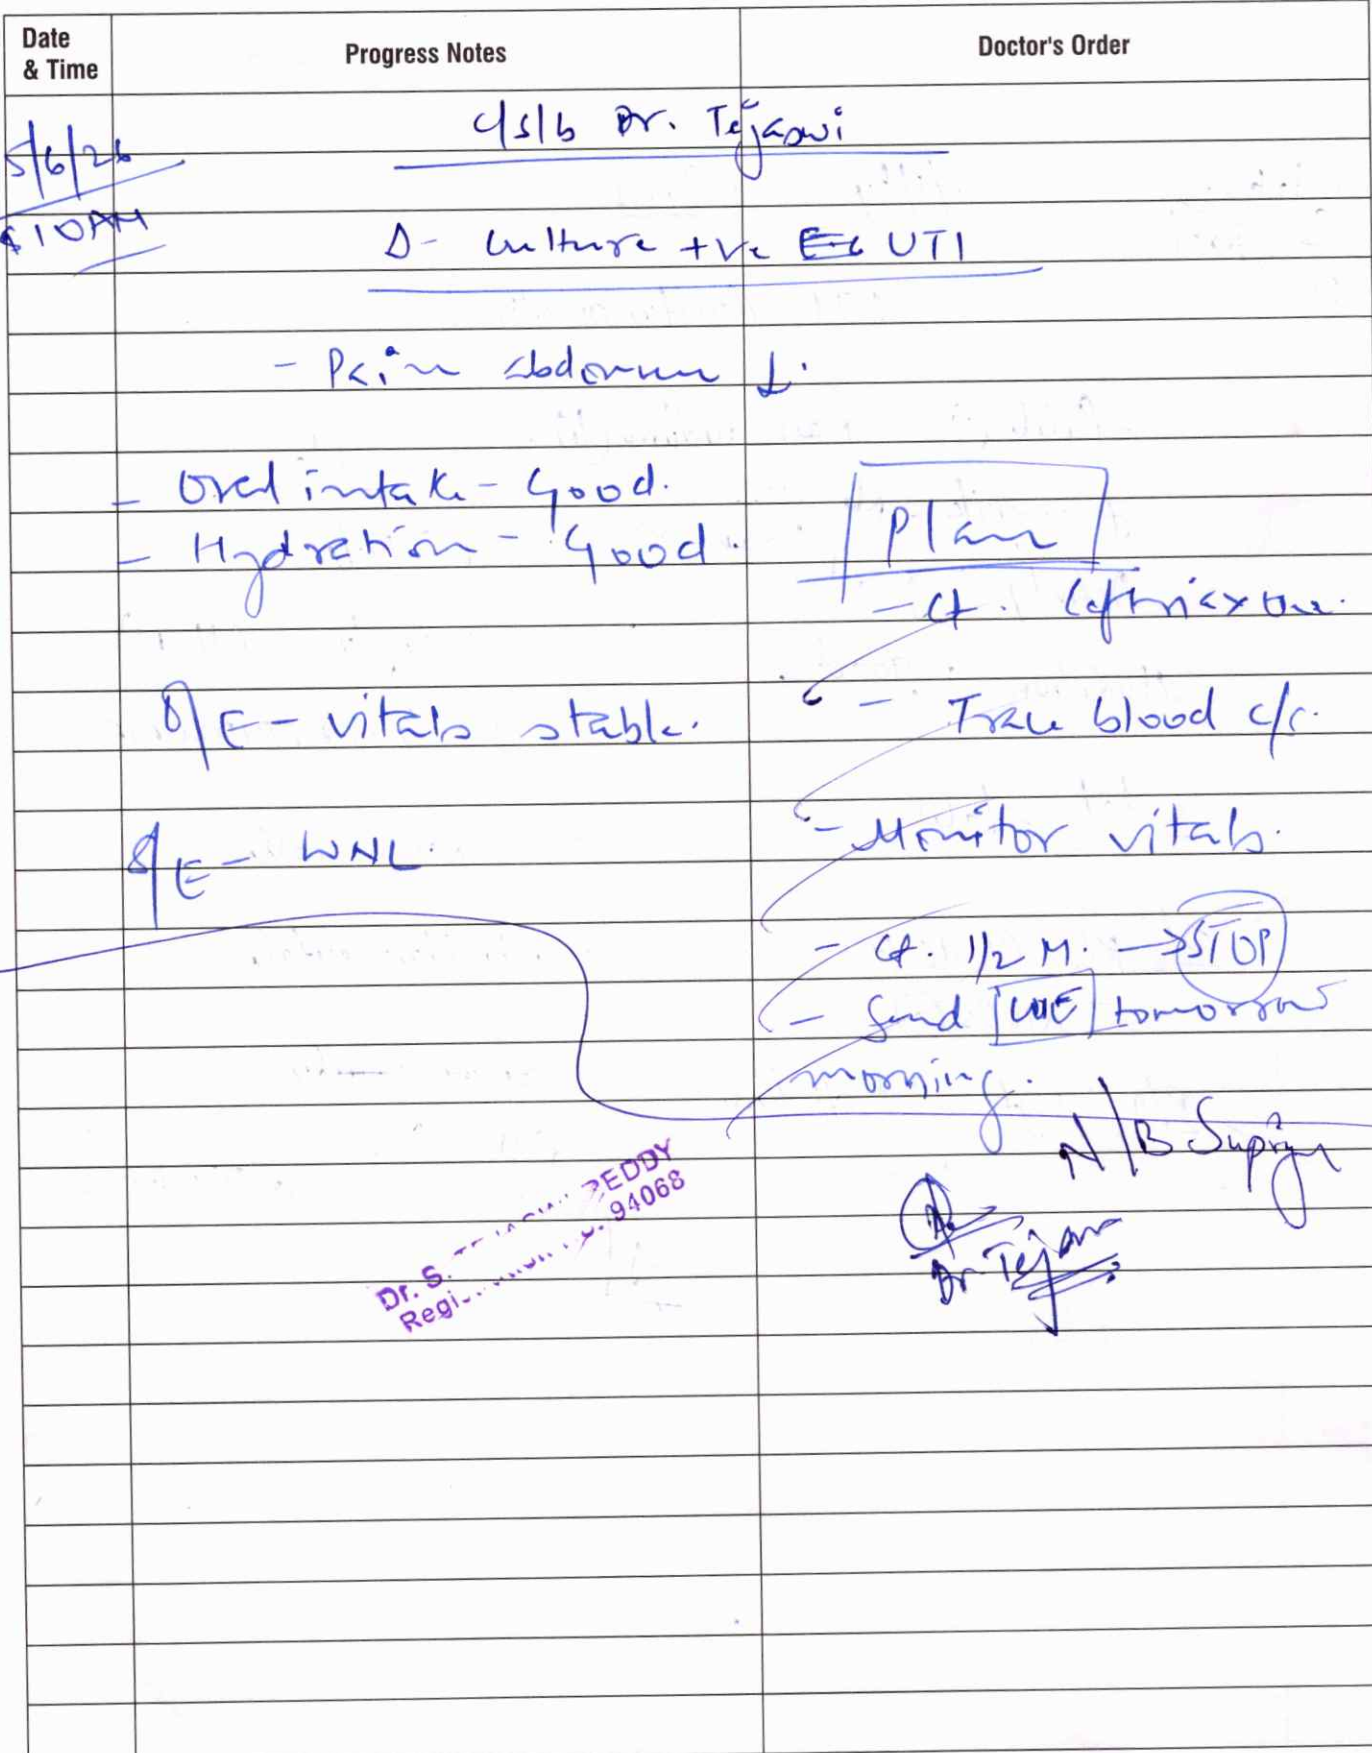 Date & Time
Progress Notes
Doctor's Order
5/6/26
10AM
c/s/b Dr. Tejaswi
Δ- Culture +ve UTI
- Pain abdomen ↓.
- Oral intake - Good.
- Hydration - Good.
Plan
- Ct. Ceftriaxone.
O/E - vitals stable.
- Trace blood c/s.
- Monitor vitals.
S/E - WNL
- Ct. 1/2 M. → STOP
- Send CUE tomorrow
morning.
N/B Supriya
Dr. Teja
Dr. S. REDDY
94068